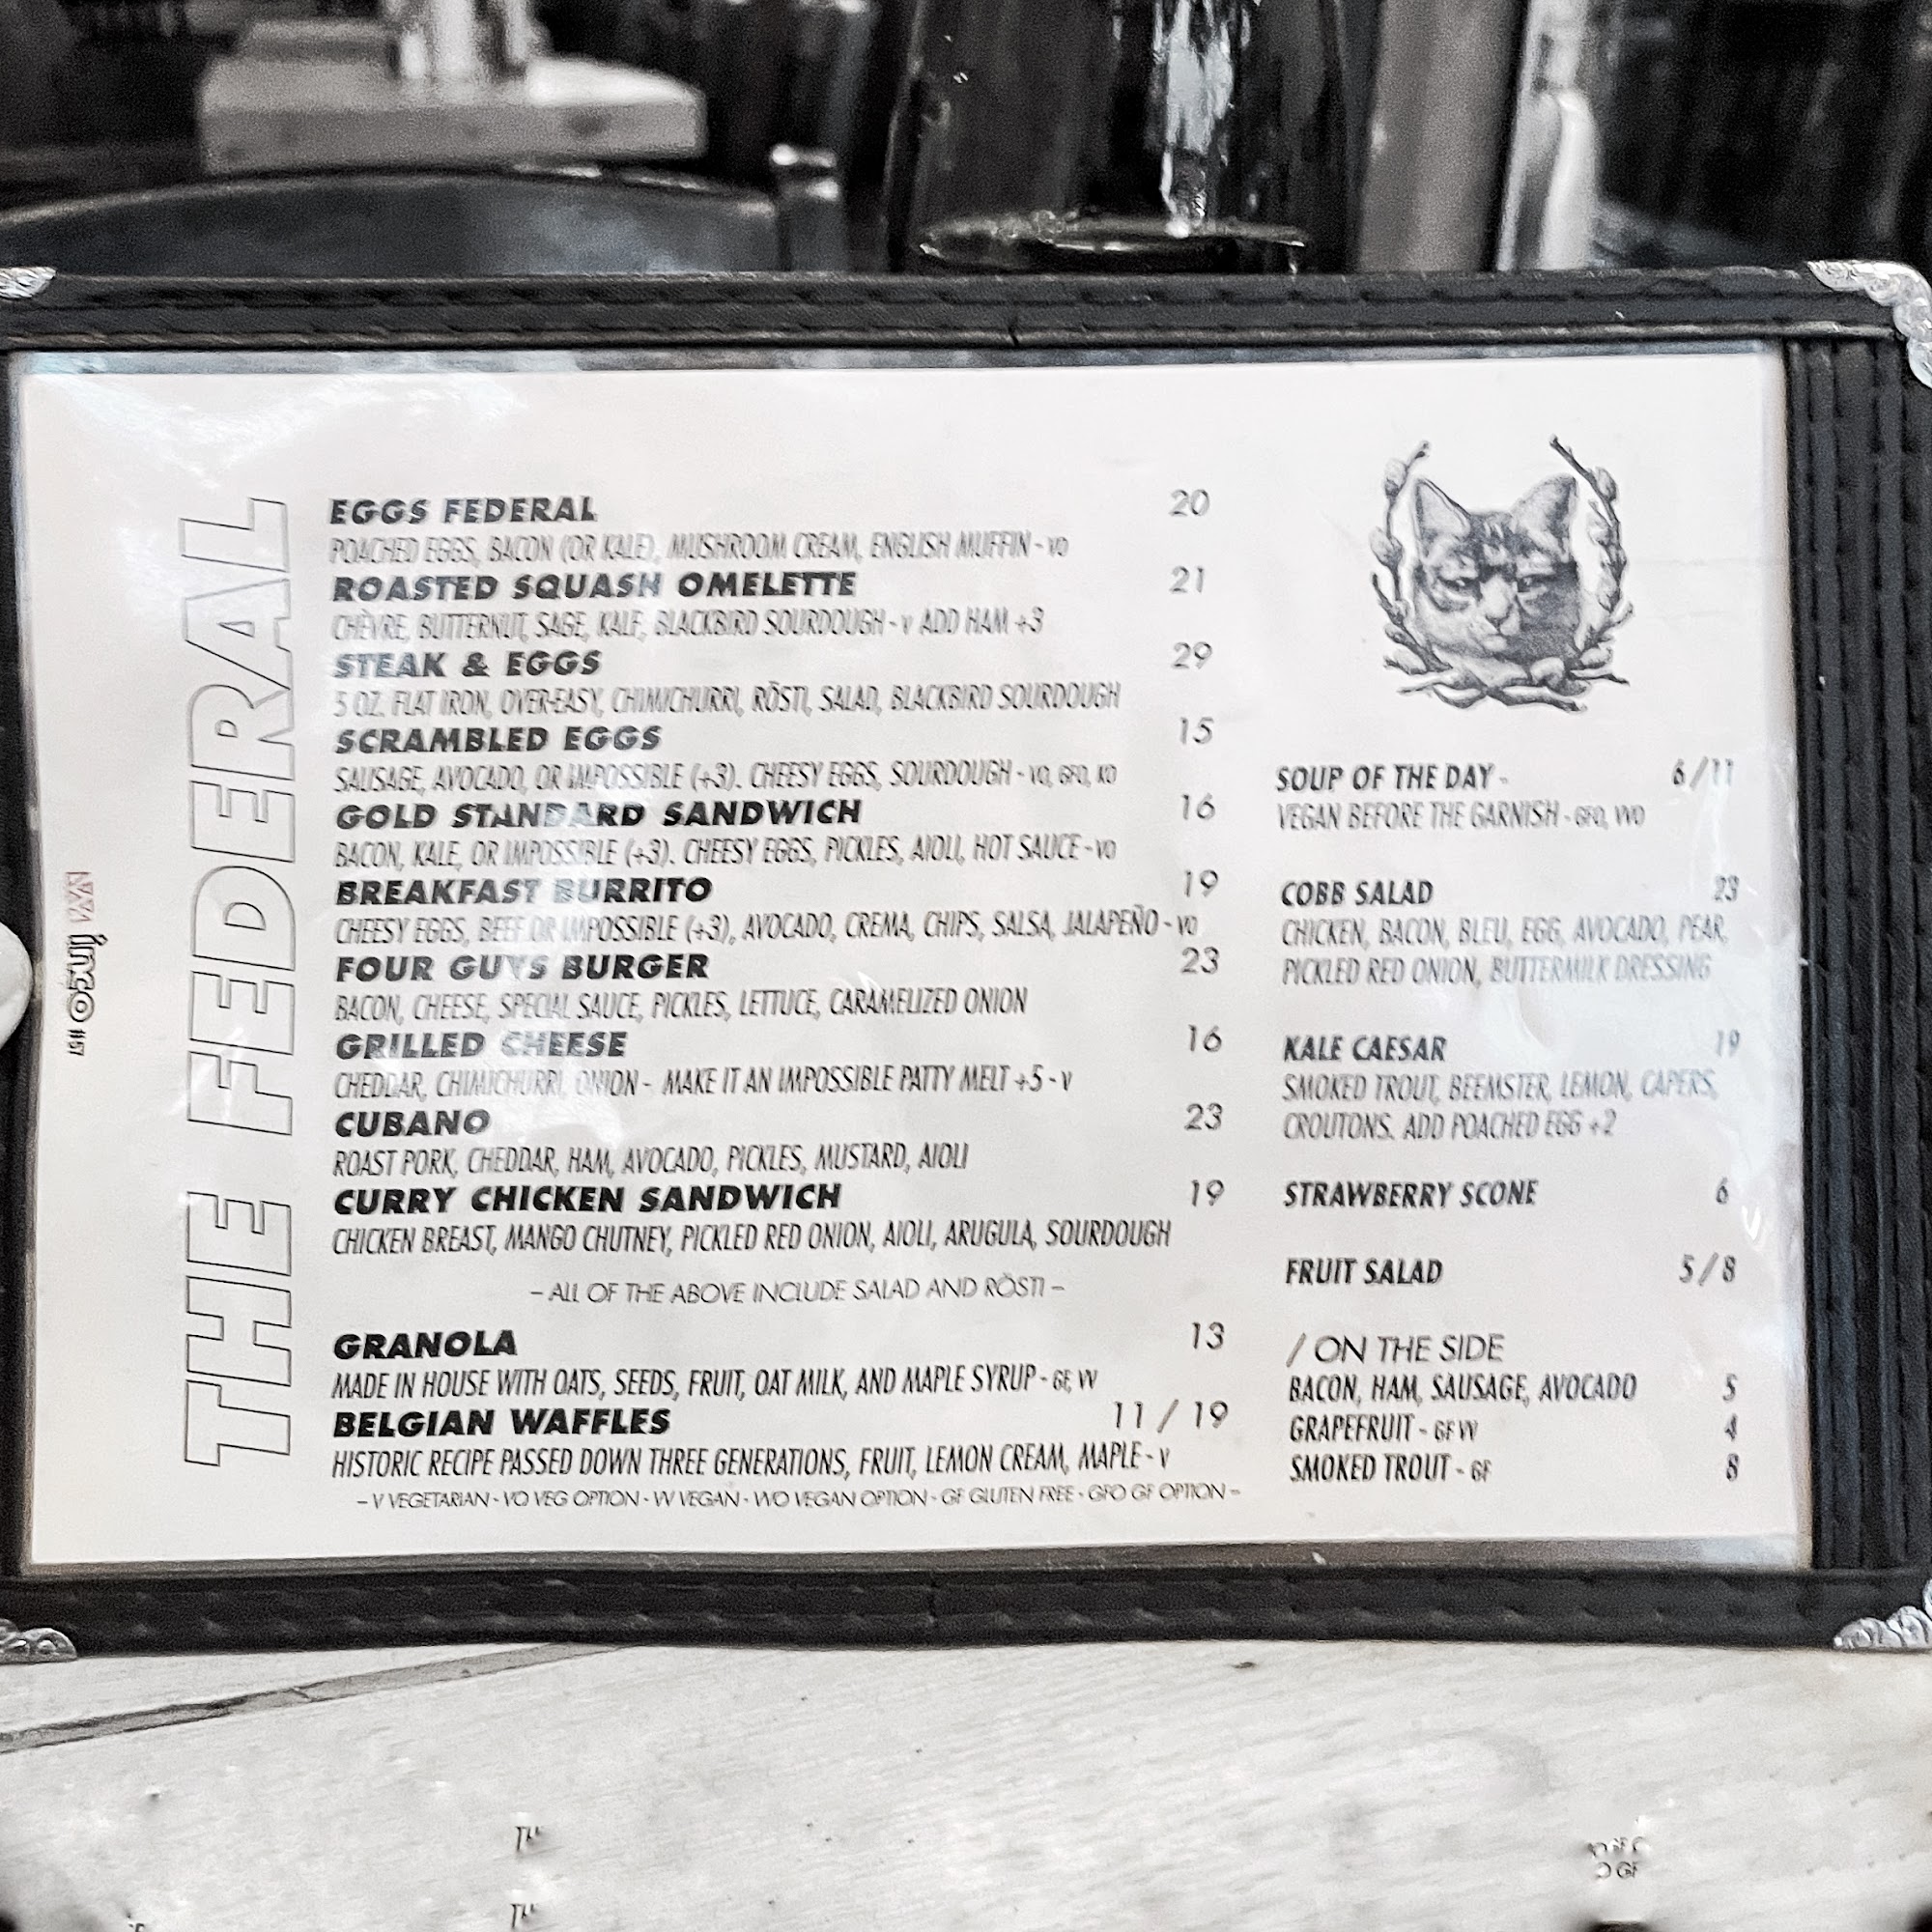 THE FEDERAL
EGGS FEDERAL 20
POACHED EGGS, BACON (OR KALE), MUSHROOM CREAM, ENGLISH MUFFIN - VO
ROASTED SQUASH OMELETTE 21
CHÈVRE, BUTTERNUT, SAGE, KALE, BLACKBIRD SOURDOUGH - V ADD HAM +3
STEAK & EGGS 29
5 OZ. FLAT IRON, OVER-EASY, CHIMICHURRI, RÖSTI, SALAD, BLACKBIRD SOURDOUGH
SCRAMBLED EGGS 15
SAUSAGE, AVOCADO, OR IMPOSSIBLE (+3). CHEESY EGGS, SOURDOUGH - VO, GFO,
GOLD STANDARD SANDWICH 16
BACON, KALE, OR IMPOSSIBLE (+3). CHEESY EGGS, PICKLES, AIOLI, HOT SAUCE - VO
BREAKFAST BURRITO 19
CHEESY EGGS, BEEF OR IMPOSSIBLE (+3), AVOCADO, CREMA, CHIPS, SALSA, JALAPEÑO - VO
FOUR GUYS BURGER 23
BACON, CHEESE, SPECIAL SAUCE, PICKLES, LETTUCE, CARAMELIZED ONION
GRILLED CHEESE 16
CHEDDAR, CHIMICHURRI, ONION - MAKE IT AN IMPOSSIBLE PATTY MELT +5 - V
CUBANO 23
ROAST PORK, CHEDDAR, HAM, AVOCADO, PICKLES, MUSTARD, AIOLI
CURRY CHICKEN SANDWICH 19
CHICKEN BREAST, MANGO CHUTNEY, PICKLED RED ONION, AIOLI, ARUGULA, SOURDOUGH
– ALL OF THE ABOVE INCLUDE SALAD AND RÖSTI –
GRANOLA 13
MADE IN HOUSE WITH OATS, SEEDS, FRUIT, OAT MILK, AND MAPLE SYRUP - GF, VV
BELGIAN WAFFLES 11 / 19
HISTORIC RECIPE PASSED DOWN THREE GENERATIONS, FRUIT, LEMON CREAM, MAPLE - V
– V VEGETARIAN - VO VEG OPTION - VV VEGAN - VVO VEGAN OPTION - GF GLUTEN FREE - GFO GF OPTION –
SOUP OF THE DAY - 6 / 11
VEGAN BEFORE THE GARNISH - GFO, VVO
COBB SALAD 23
CHICKEN, BACON, BLEU, EGG, AVOCADO, PEAR,
PICKLED RED ONION, BUTTERMILK DRESSING
KALE CAESAR 19
SMOKED TROUT, BEEMSTER, LEMON, CAPERS,
CROUTONS. ADD POACHED EGG +2
STRAWBERRY SCONE 6
FRUIT SALAD 5 / 8
/ ON THE SIDE
BACON, HAM, SAUSAGE, AVOCADO 5
GRAPEFRUIT - GF VV 4
SMOKED TROUT - GF 8
#57